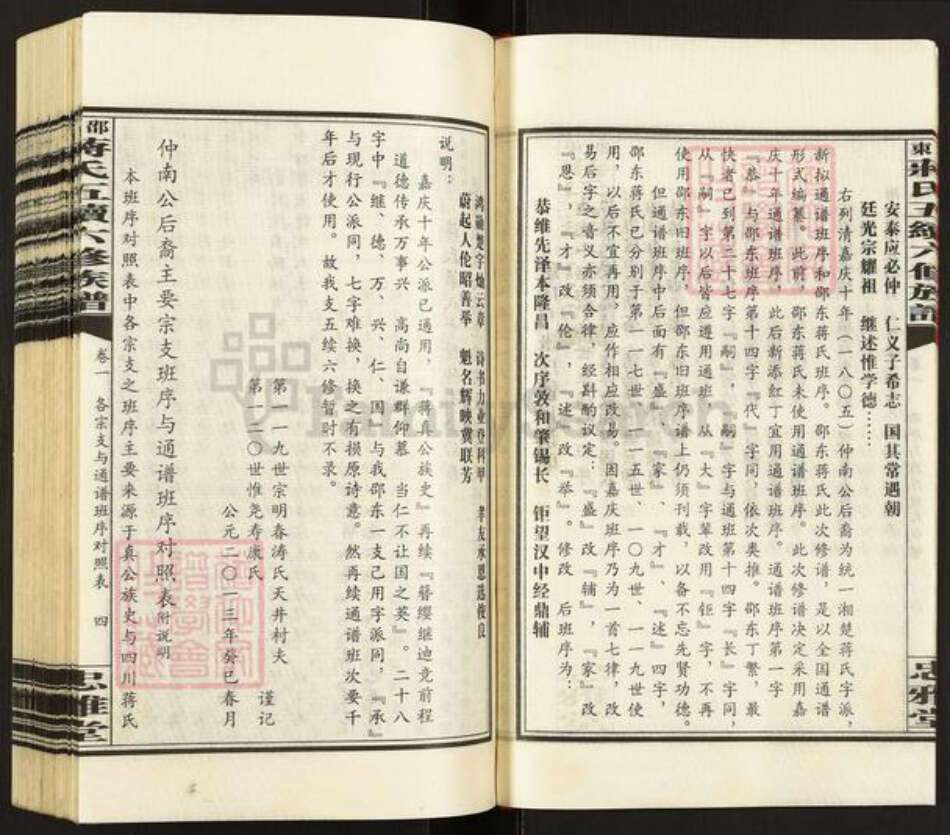 東 蔣氏五續六修族譜 忠雅堂
安泰应必仲 仁义子希志 国其常遇朝
廷光宗耀祖 继述惟学德……
右列清嘉庆十年（一八〇五）仲南公后裔为统一湘楚蒋氏字派，
新拟通谱班序和邵东蒋氏班序。邵东蒋氏此次修谱，是以全国通谱
形式编纂。此前，邵东蒋氏未使用通谱班序。此次修谱决定采用嘉
庆十年通谱班序，此后新添红丁宜用通谱班序。通谱班序第一字
『恭』与邵东班序第十四字『代』字同，依次类推。邵东丁繁，最
快者已到第二十七字『嗣』，『嗣』字与通班第十四字『长』字同，
从『嗣』字以后皆应遵用通班。从『大』字辈改用『钜』字，不再
使用邵东旧班序。但邵东旧班序谱上仍须刊载，以备不忘先贤功德。
但通谱班序中后面有『盛』、『家』、『才』、『述』四字，
邵东蒋氏已分别于第一一七世、一一五世、一〇九世、一一九世使
用，以后不宜再用，应作相应改易。因嘉庆班序乃为一首七律，改
易后字之音义亦须合律，经斟酌议定：『盛』改『辅』，『家』改
『恩』，『才』改『伦』，『述』改『举』。修改 后班序为：
恭维先泽本隆昌 次序敦和肇锡长 钜望汉中经鼎辅
鸿勋楚宇灿云章 诗书力业登科甲 孝友承恩选俊良
蔚起人伦昭善举 魁名辉映冀联芳
说明：
嘉庆十年公派已通用，『蒋真公族史』再续『簪缨继迪竞前程
道德传承万事兴 高尚自谦群仰慕 当仁不让国之英』。二十八
字中『继、德、万、兴、仁、国』与我邵东一支已用字派同，『承』
与现行公派同，七字难换，换之有损原诗意。然再续通谱班次要千
年后才使用。故我支五续六修暂时不录。
第一一九世宗明春涛氏天井村夫
第一二〇世惟尧寿康氏 谨记
公元二〇一三年癸巳春月
仲南公后裔主要宗支班序与通谱班序对照表附说明
本班序对照表中各宗支之班序主要来源于真公族史与四川蒋氏
邵 蔣氏五續六修族譜 卷一 各宗支与通谱班序对照表 四 忠雅堂
FamilySearch